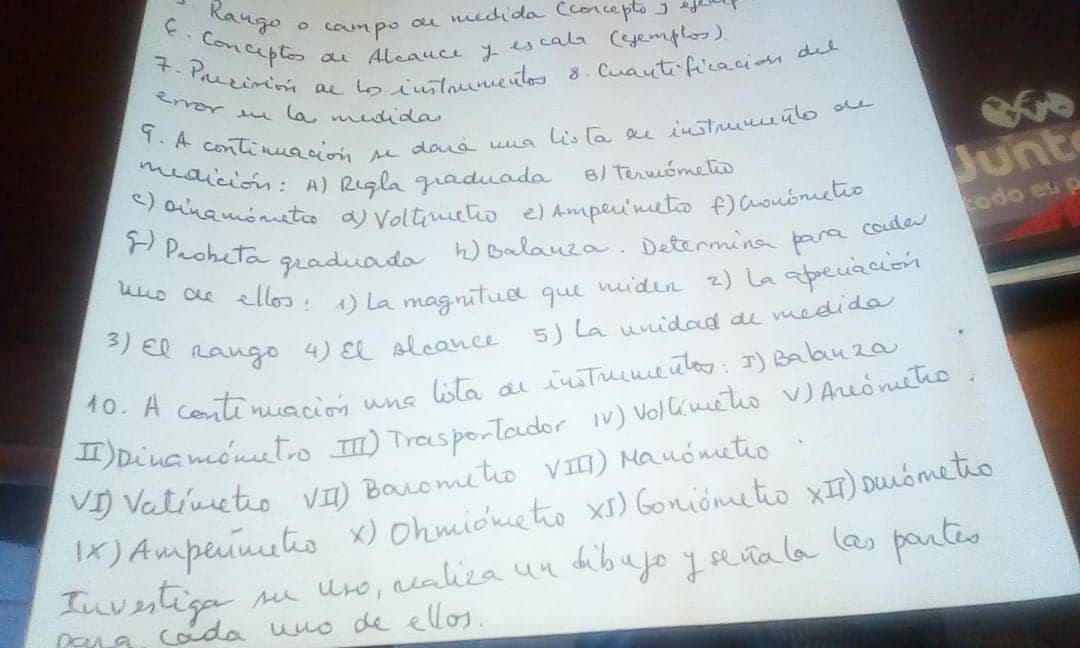 Rango o campo de medida (concepto y ejemp
6. Conceptos de Alcance y escala (ejemplos).
7. Precisión de los instrumentos 8. Cuantificacion del
error en la medida
9. A continuación se dará una lista de instrumento de
medición: A) Regla graduada B) Termómetro
c) Dinamómetro d) Voltimetro e) Amperimetro f) Cronómetro
g) Probeta graduada h) Balanza. Determina para cada
uno de ellos: 1) La magnitud que miden 2) La apreciación
3) El Rango 4) El Alcance 5) La unidad de medida
10. A continuación una lista de instrumentos: I) Balanza
II) Dinamómetro III) Trasportador IV) Voltímetro V) Areómetro.
VI) Vatímetro VII) Barometro VIII) Manómetro
IX) Amperímetro X) Ohmiómetro XI) Goniómetro XII) Durómetro
Investiga su uso, realiza un dibujo y señala las partes
para cada uno de ellos.
Junt
todo es p